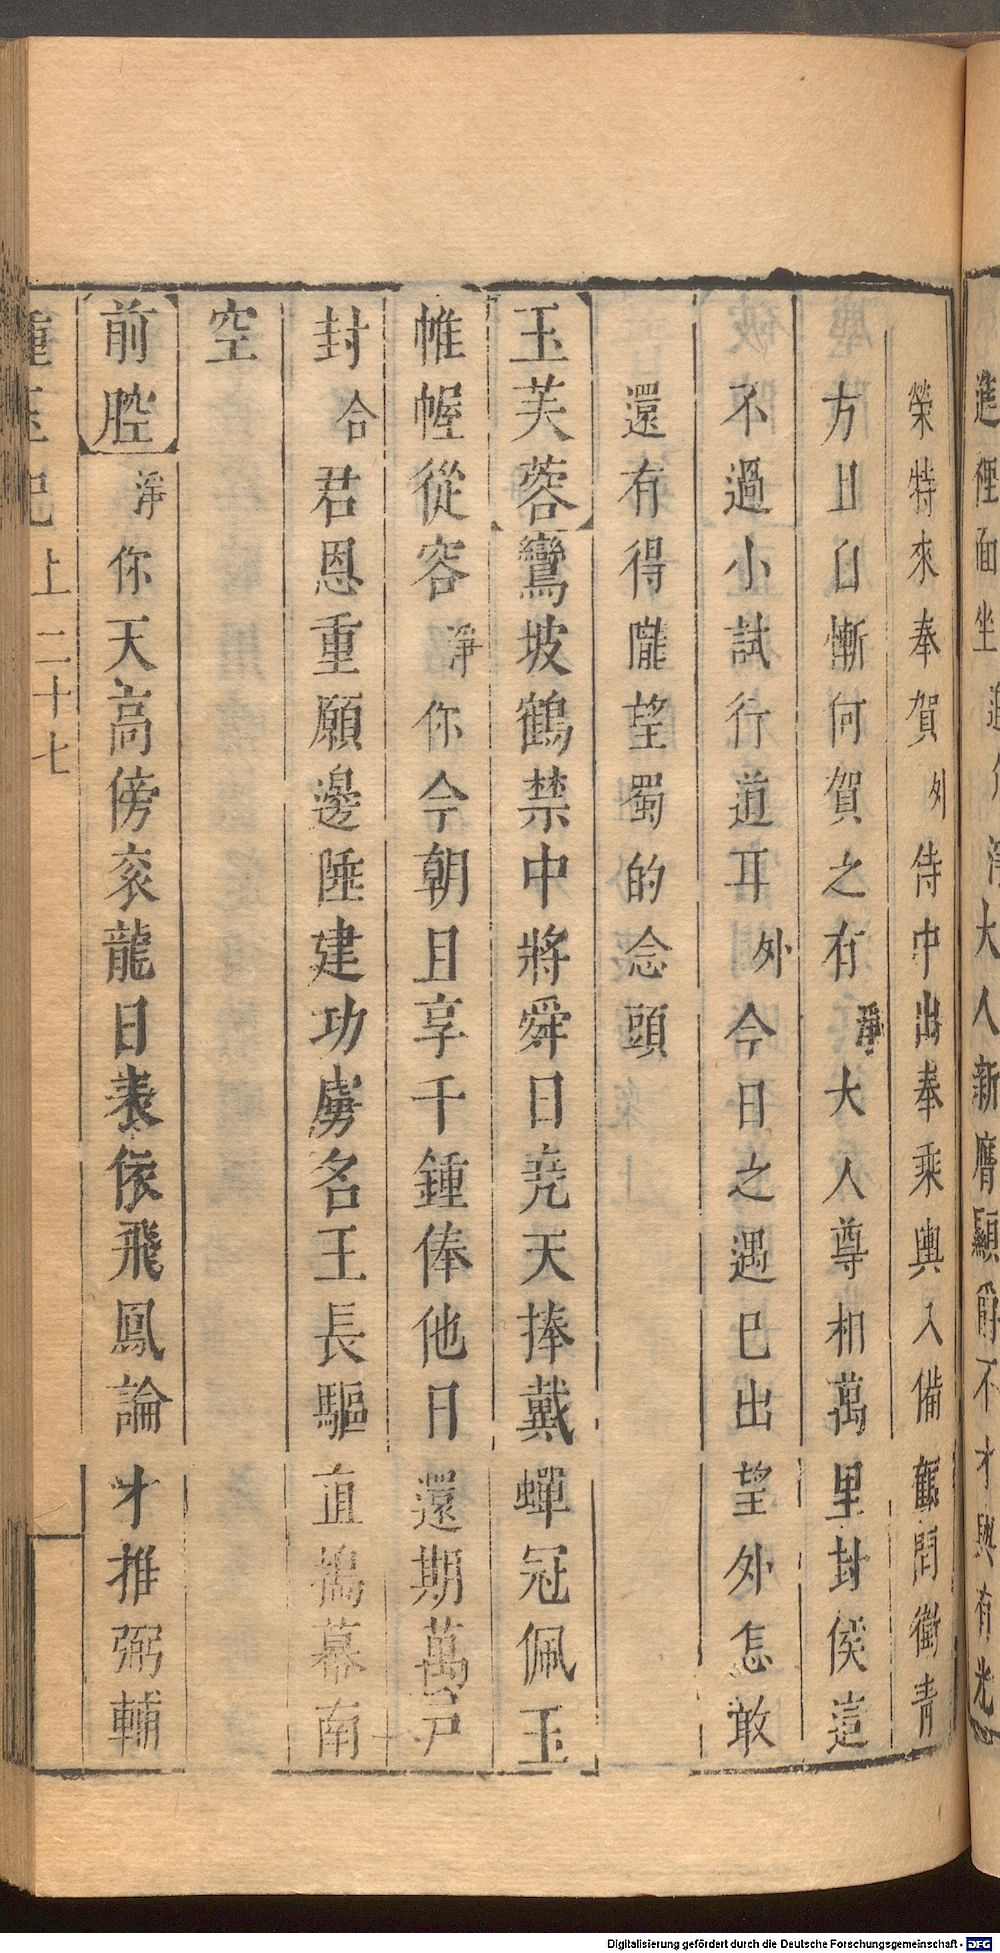 進裡面坐
大人新膺顯爵不才與有光
榮特來奉賀外侍中出奉乘輿入備顧問衛青
方且自慚何賀之有淨大人尊相萬里封侯這
不過小試行道耳外今日之遇已出望外怎敢
還有得隴望蜀的念頭
玉芙蓉鸞坡鶴禁中將舜日堯天捧戴蟬冠佩玉
帷幄從容淨你今朝且享千鍾俸他日還期萬戸
封合君恩重願邊陲建功虜名王長驅直搗幕南
空
前腔淨你天高傍袞龍日表依飛鳳論才推弼輔
種玉記 上 二十七
Digitalisierung gefördert durch die Deutsche Forschungsgemeinschaft - DFG